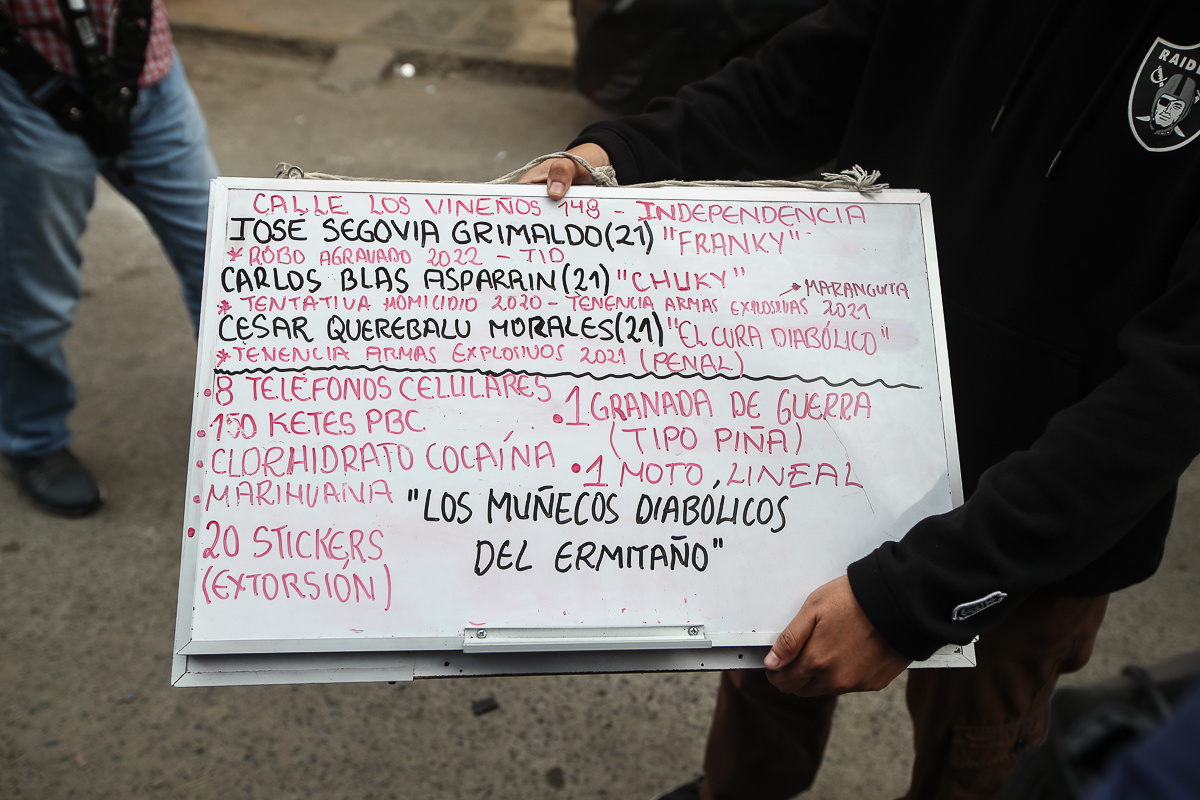 CALLE LOS VINEÑOS 148 - INDEPENDENCIA
JOSÉ SEGOVIA GRIMALDO(21) "FRANKY"
* RÓBO AGRAVADO 2022 - TID
CARLOS BLAS ASPARRIN(21) "CHUKY"
→ MARANGUITA
* TENTATIVA HOMICIDIO 2020 - TENENCIA ARMAS EXPLOSIVAS 2021
CESAR QUEREBALU MORALES(21) "EL CURA DIABÓLICO"
* TENENCIA ARMAS EXPLOSIVOS 2021 (PENAL)
• 8 TELÉFONOS CELULARES
• 150 KETES PBC
• CLORHIDRATO COCAÍNA
• MARIHUANA
• 20 STICKERS
(EXTORSIÓN)
• 1 GRANADA DE GUERRA
(TIPO PIÑA)
• 1 MOTO LINEAL
"LOS MUÑECOS DIABÓLICOS
DEL ERMITAÑO"
RAID